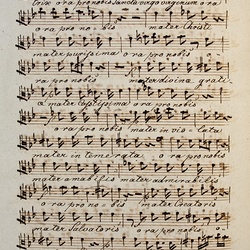 trix ora pro nobis Sancta virgo virginum ora
ora pro no - bis mater Christi
mater purissima ora pro no bis
ra pro nobis mater divina grati
a mater castissima ora pro nobis
ora pro nobis mater invio - lata
mater intemerata ora pro nobis
mater amabilis mater admirabilis
ora pro no - bis mater Creatoris
mater Salvatoris ora pro nobis o -